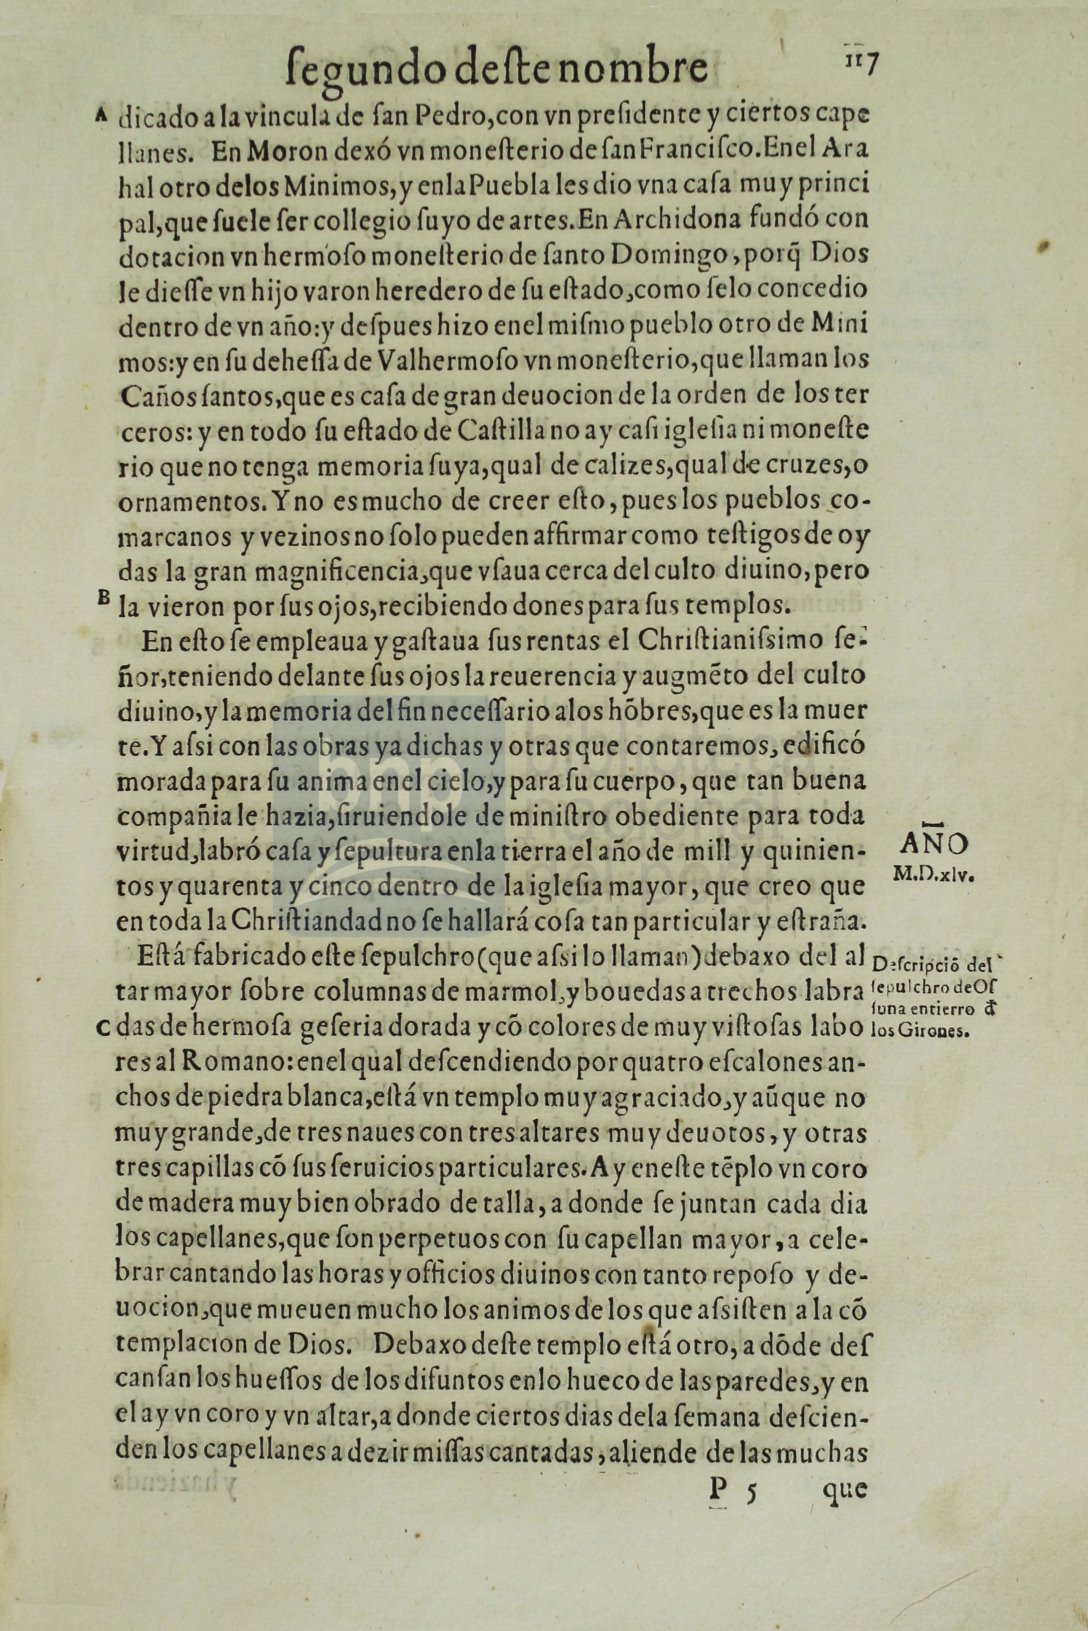 ſegundo deſte nombre
117
A dicado a la vincula de ſan Pedro, con vn preſidente y ciertos cape
llanes. En Moron dexó vn moneſterio de ſan Franciſco. En el Ara
hal otro delos Minimos, y en la Puebla les dio vna caſa muy princi
pal, que ſuele ſer collegio ſuyo de artes. En Archidona fundó con
dotacion vn hermoſo moneſterio de ſanto Domingo, porq̃ Dios
le dieſſe vn hijo varon heredero de ſu eſtado, como ſelo concedio
dentro de vn año: y deſpues hizo enel miſmo pueblo otro de Mini
mos: y en ſu deheſſa de Valhermoſo vn moneſterio, que llaman los
Caños ſantos, que es caſa de gran deuocion de la orden de los ter
ceros: y en todo ſu eſtado de Caſtilla no ay caſi igleſia ni moneſte
rio que no tenga memoria ſuya, qual de calizes, qual de cruzes, o
ornamentos. Y no es mucho de creer eſto, pues los pueblos co-
marcanos y vezinos no ſolo pueden affirmar como teſtigos de oy
das la gran magnificencia, que vſaua cerca del culto diuino, pero
B la vieron por ſus ojos, recibiendo dones para ſus templos.
En eſto ſe empleaua y gaſtaua ſus rentas el Chriſtianiſsimo ſe-
ñor, teniendo delante ſus ojos la reuerencia y augmẽto del culto
diuino, y la memoria del fin neceſſario alos hõbres, que es la muer
te. Y aſsi con las obras ya dichas y otras que contaremos, edificó
morada para ſu anima enel cielo, y para ſu cuerpo, que tan buena
compañia le hazia, ſiruiendole de miniſtro obediente para toda
virtud, labró caſa y ſepultura enla tierra el año de mill y quinien-
tos y quarenta y cinco dentro de la igleſia mayor, que creo que
en toda la Chriſtiandad no ſe hallará coſa tan particular y eſtraña.
AÑO
M.D.xlv.
Eſtá fabricado eſte ſepulchro (que aſsi lo llaman) debaxo del al
tar mayor ſobre columnas de marmol, y bouedas a trechos labra
C das de hermoſa geſeria dorada y cõ colores de muy viſtoſas labo
res al Romano: enel qual deſcendiendo por quatro eſcalones an-
chos de piedra blanca, eſtá vn templo muy agraciado, y aũque no
muy grande, de tres naues con tres altares muy deuotos, y otras
tres capillas cõ ſus ſeruicios particulares. Ay eneſte tẽplo vn coro
de madera muy bien obrado de talla, a donde ſe juntan cada dia
los capellanes, que ſon perpetuos con ſu capellan mayor, a cele-
brar cantando las horas y officios diuinos con tanto repoſo y de-
uocion, que mueuen mucho los animos de los que aſsiſten a la cõ
templacion de Dios. Debaxo deſte templo eſtá otro, a dõde deſ
canſan los hueſſos de los difuntos enlo hueco de las paredes, y en
el ay vn coro y vn altar, a donde ciertos dias dela ſemana deſcien-
den los capellanes a dezir miſſas cantadas, aliende de las muchas
Deſcripciõ del
ſepulchro de Oſ
ſuna entierro đ
los Girones.
P 5
que